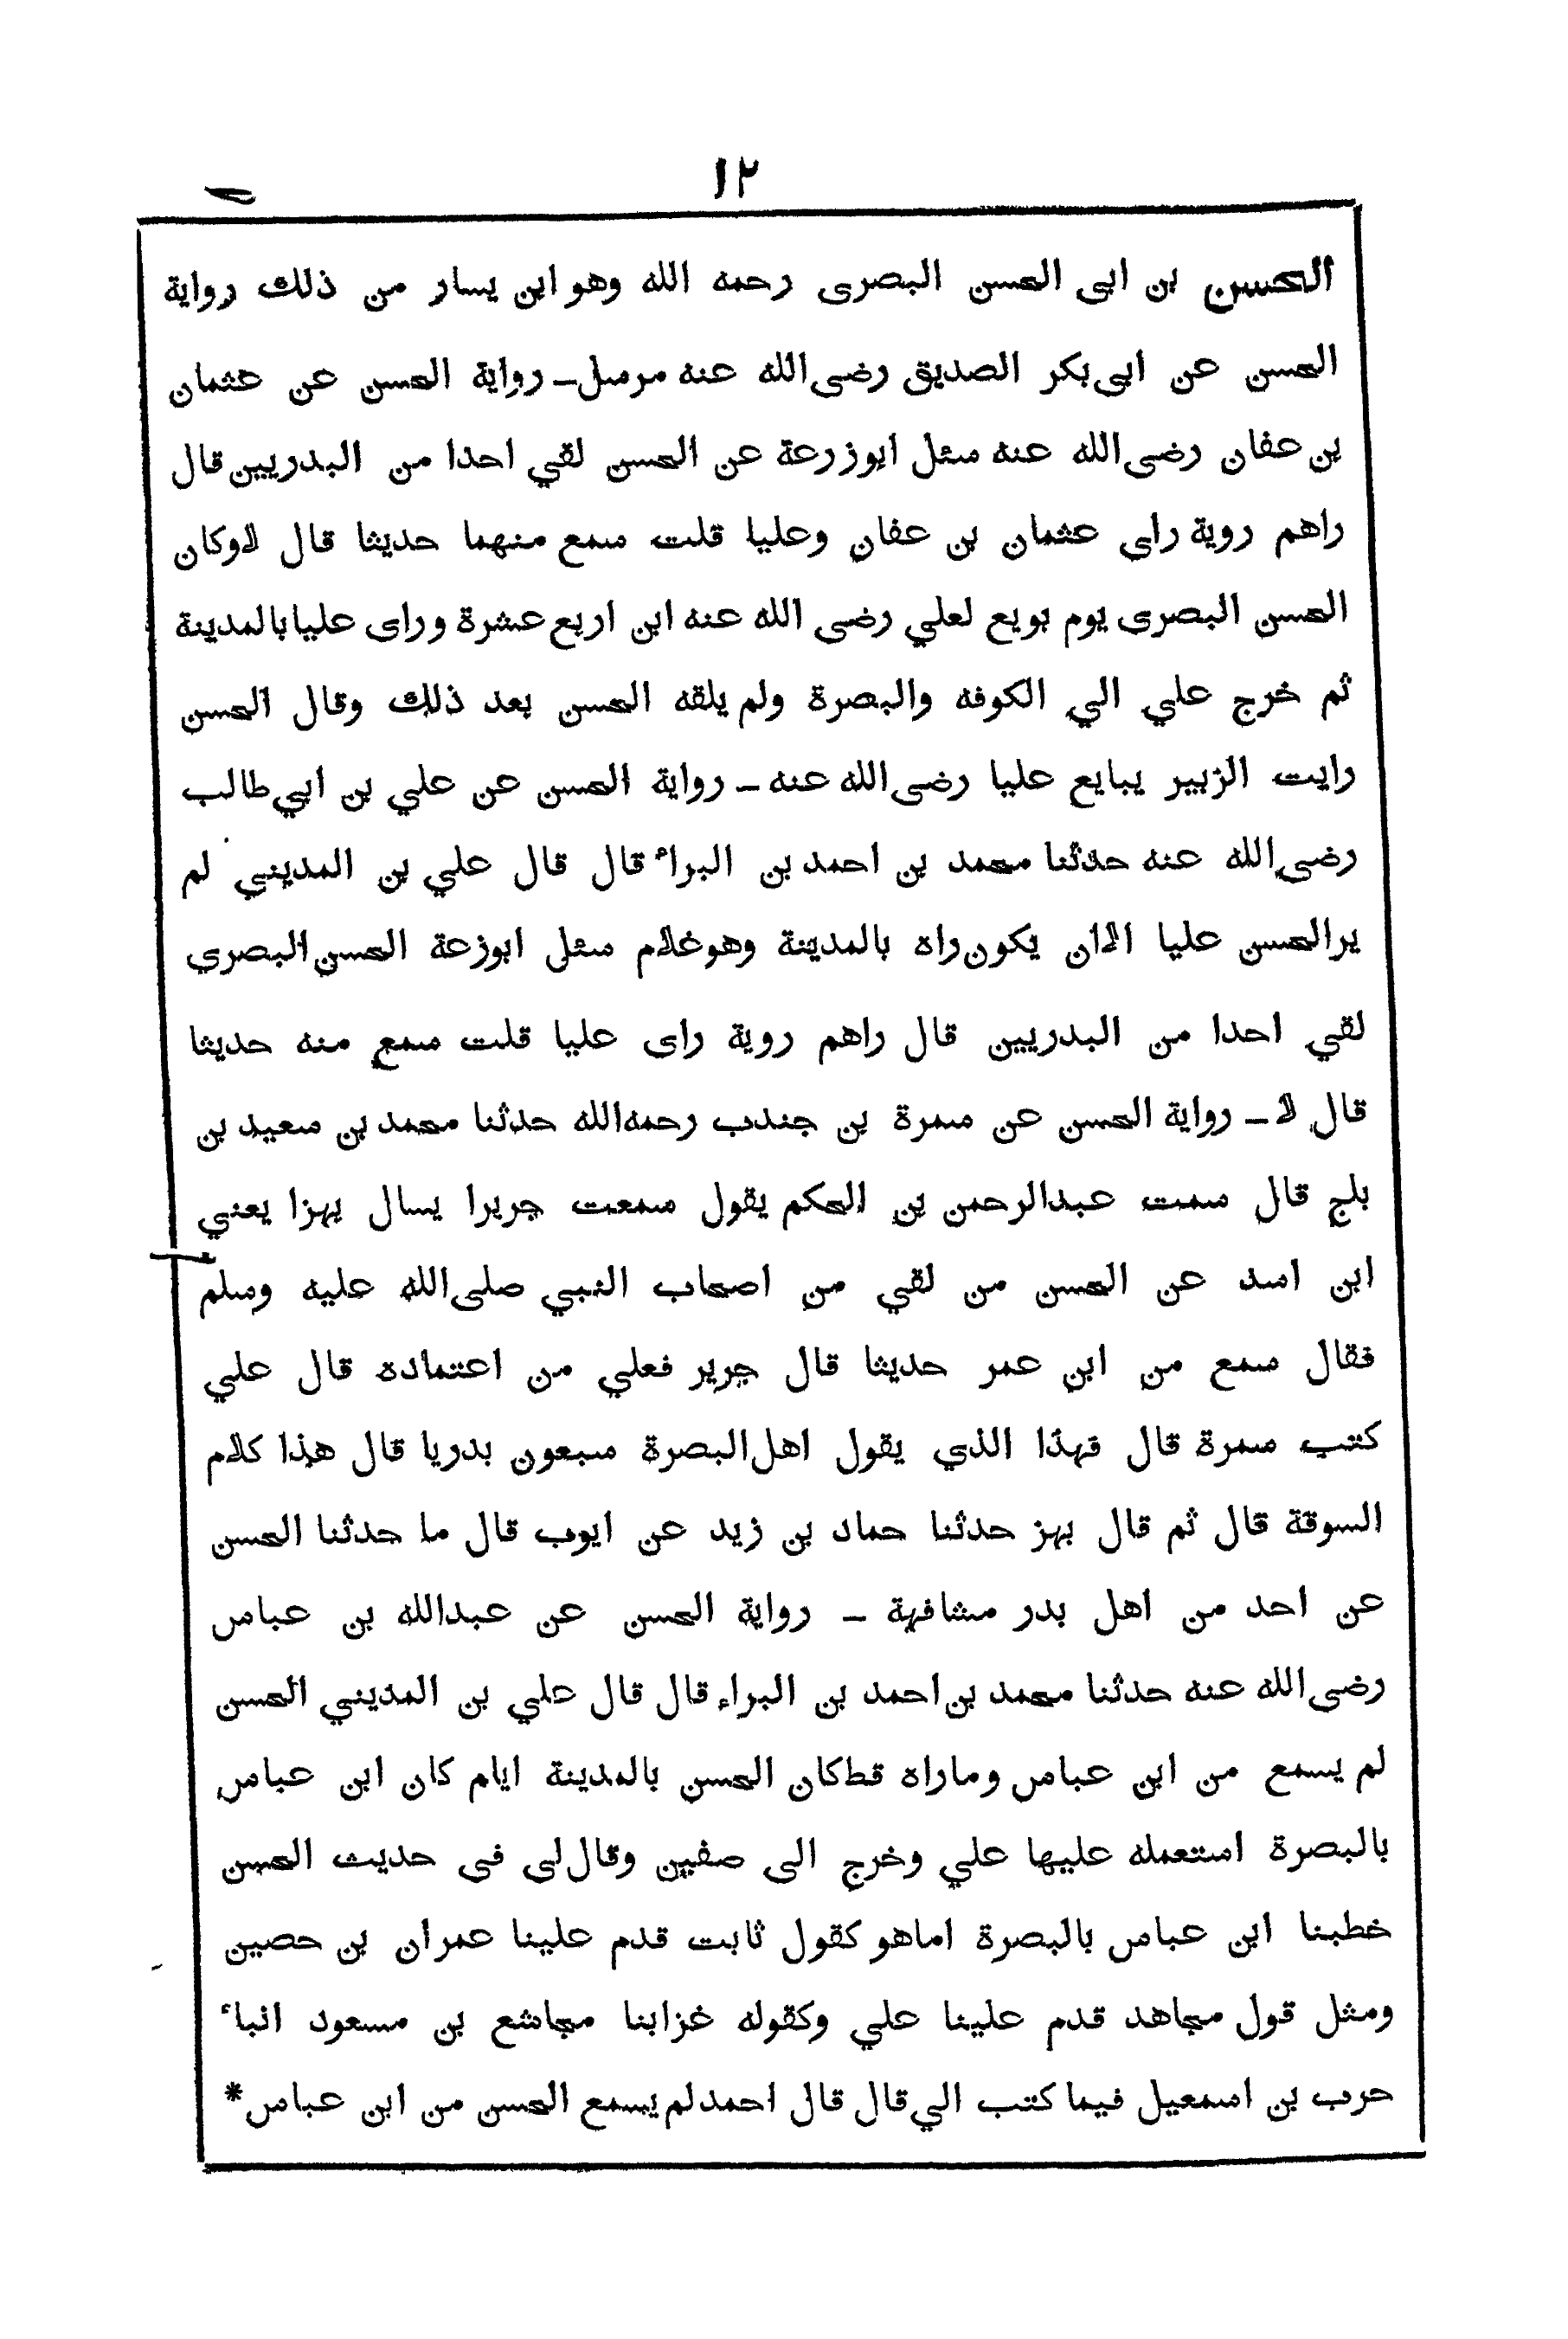 ١٢
الحسن بن ابى الحسن البصرى رحمه الله وهو ابن يسار من ذلك رواية
الحسن عن ابى بكر الصديق رضى الله عنه مرسل ـ رواية الحسن عن عثمان
بن عفان رضى الله عنه سئل ابوزرعة عن الحسن لقي احدا من البدريين قال
راهم روية راى عثمان بن عفان وعليا قلت سمع منهما حديثا قال لا وكان
الحسن البصرى يوم بويع لعلي رضى الله عنه ابن اربع عشرة وراى عليا بالمدينة
ثم خرج علي الي الكوفه والبصرة ولم يلقه الحسن بعد ذلك وقال الحسن
رايت الزبير يبايع عليا رضى الله عنه ـ رواية الحسن عن علي بن ابي طالب
رضى الله عنه حدثنا محمد بن احمد بن البراء قال قال علي بن المديني لم
ير الحسن عليا الا ان يكون راه بالمدينة وهو غلام سئل ابوزعة الحسن البصري
لقي احدا من البدريين قال راهم روية راى عليا قلت سمع منه حديثا
قال لا ـ رواية الحسن عن سمرة بن جندب رحمه الله حدثنا محمد بن سعيد بن
بلج قال سمت عبدالرحمن بن الحكم يقول سمعت جريرا يسال بهزا يعني
ابن اسد عن الحسن من لقي من اصحاب النبي صلى الله عليه وسلم
فقال سمع من ابن عمر حديثا قال جرير فعلي من اعتماده قال علي
كتب سمرة قال فهذا الذي يقول اهل البصرة سبعون بدريا قال هذا كلام
السوقة قال ثم قال بهز حدثنا حماد بن زيد عن ايوب قال ما حدثنا الحسن
عن احد من اهل بدر مشافهة ـ رواية الحسن عن عبدالله بن عباس
رضى الله عنه حدثنا محمد بن احمد بن البراء قال قال علي بن المديني الحسن
لم يسمع من ابن عباس وماراه قط كان الحسن بالمدينة ايام كان ابن عباس
بالبصرة استعمله عليها علي وخرج الى صفين وقال لى فى حديث الحسن
خطبنا ابن عباس بالبصرة اماهو كقول ثابت قدم علينا عمران بن حصين
ومثل قول مجاهد قدم علينا علي وكقوله غزابنا مجاشع بن مسعود انباء
حرب بن اسمعيل فيما كتب الي قال قال احمد لم يسمع الحسن من ابن عباس*